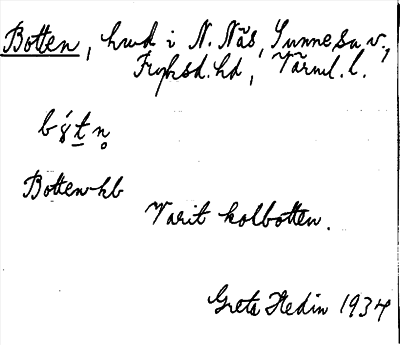 Botten, hmd i N. Näs, Sunne sn v.,
Fryksd. hd, Värml. l.
Botten hb
Varit kolbotten.
Greta Hedin 1934